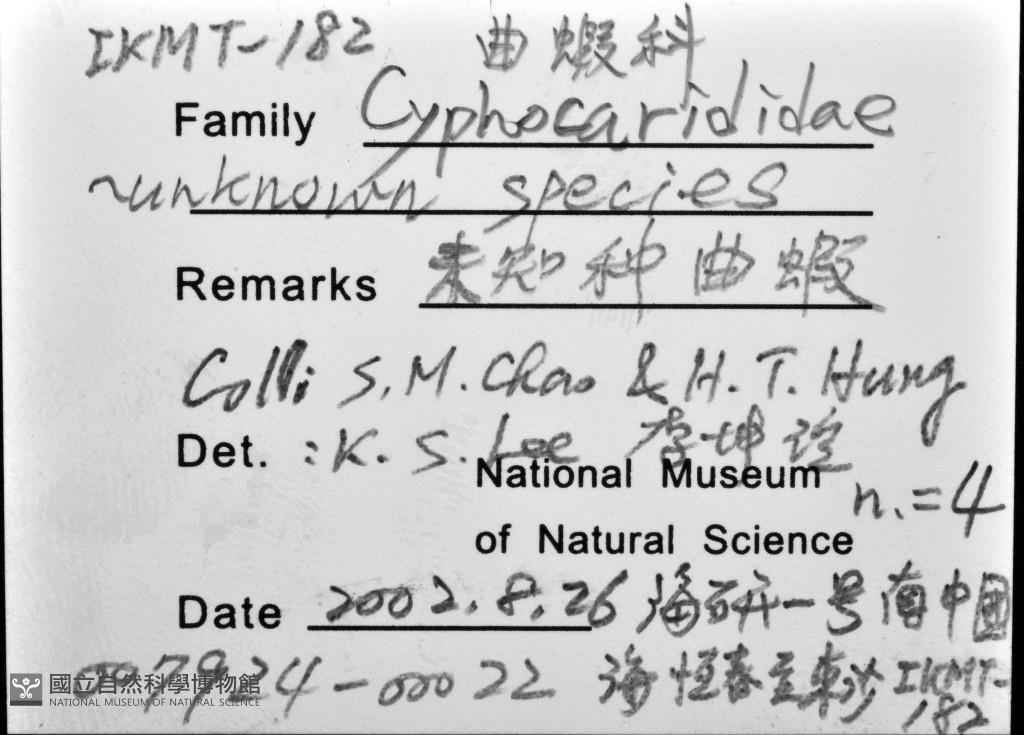 IKMT-182 曲蝦科
Family Cyphocarididae
~unknown species
Remarks 未知种曲蝦
Colli S. M. Chao & H. T. Hung
Det. : K. S. Lee 李坤瑄
National Museum
n.=4
of Natural Science
Date 2002.8.26 海研一号南中国
007924-00022 海恆春至東沙 IKMT-
182
國立自然科學博物館
NATIONAL MUSEUM OF NATURAL SCIENCE